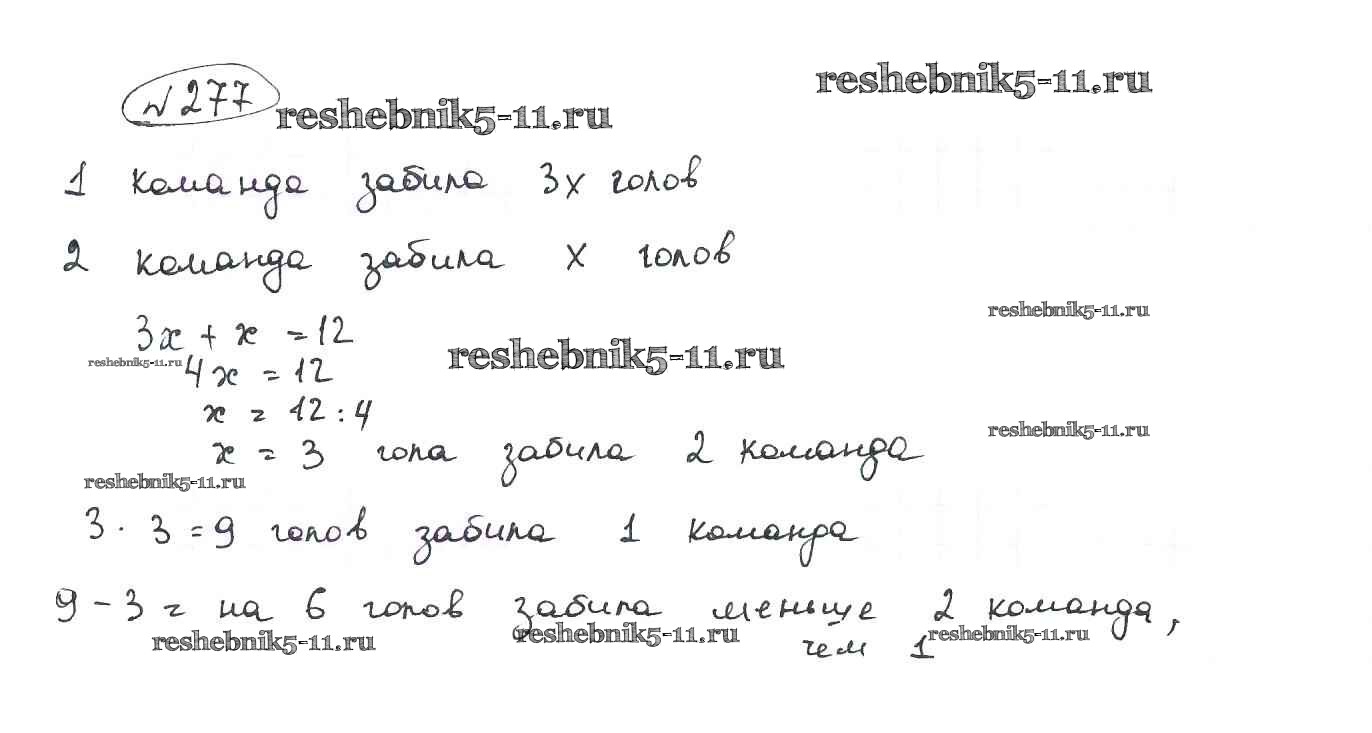 reshebnik5-11.ru
№ 277
reshebnik5-11.ru
1 команда забила 3х голов
2 команда забила х голов
reshebnik5-11.ru
3x + x = 12
reshebnik5-11.ru
reshebnik5-11.ru
4x = 12
x = 12 : 4
reshebnik5-11.ru
x = 3 гола забила 2 команда
reshebnik5-11.ru
3 · 3 = 9 голов забила 1 команда
9 - 3 = на 6 голов забила меньше 2 команда,
чем 1
reshebnik5-11.ru
reshebnik5-11.ru
reshebnik5-11.ru